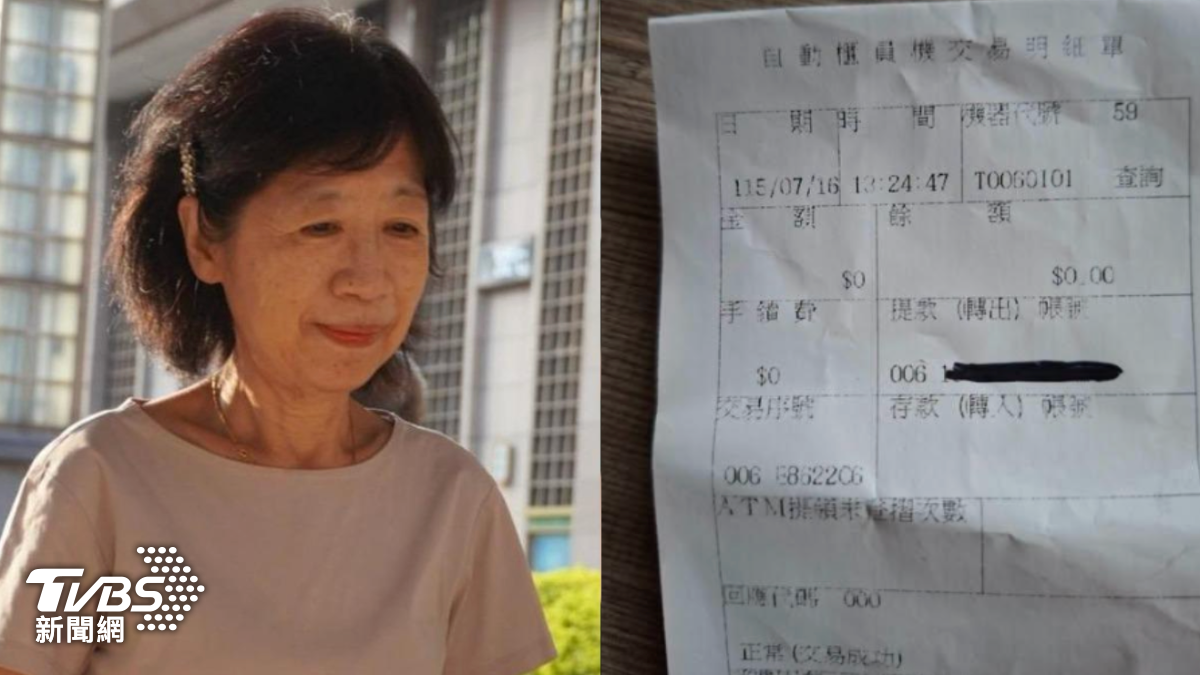 TVBS
新聞網
自動櫃員機交易明細單
日 期 時 間 機器代號 59
115/07/16 13:24:47 T0060101 查詢
金 額 餘 額
$0 $0.00
手續費 提款 (轉出) 帳號
$0 006 1
交易序號 存款 (轉入) 帳號
006 E8622C6
ATM提領未登摺次數
回應代碼 000
正常(交易成功)